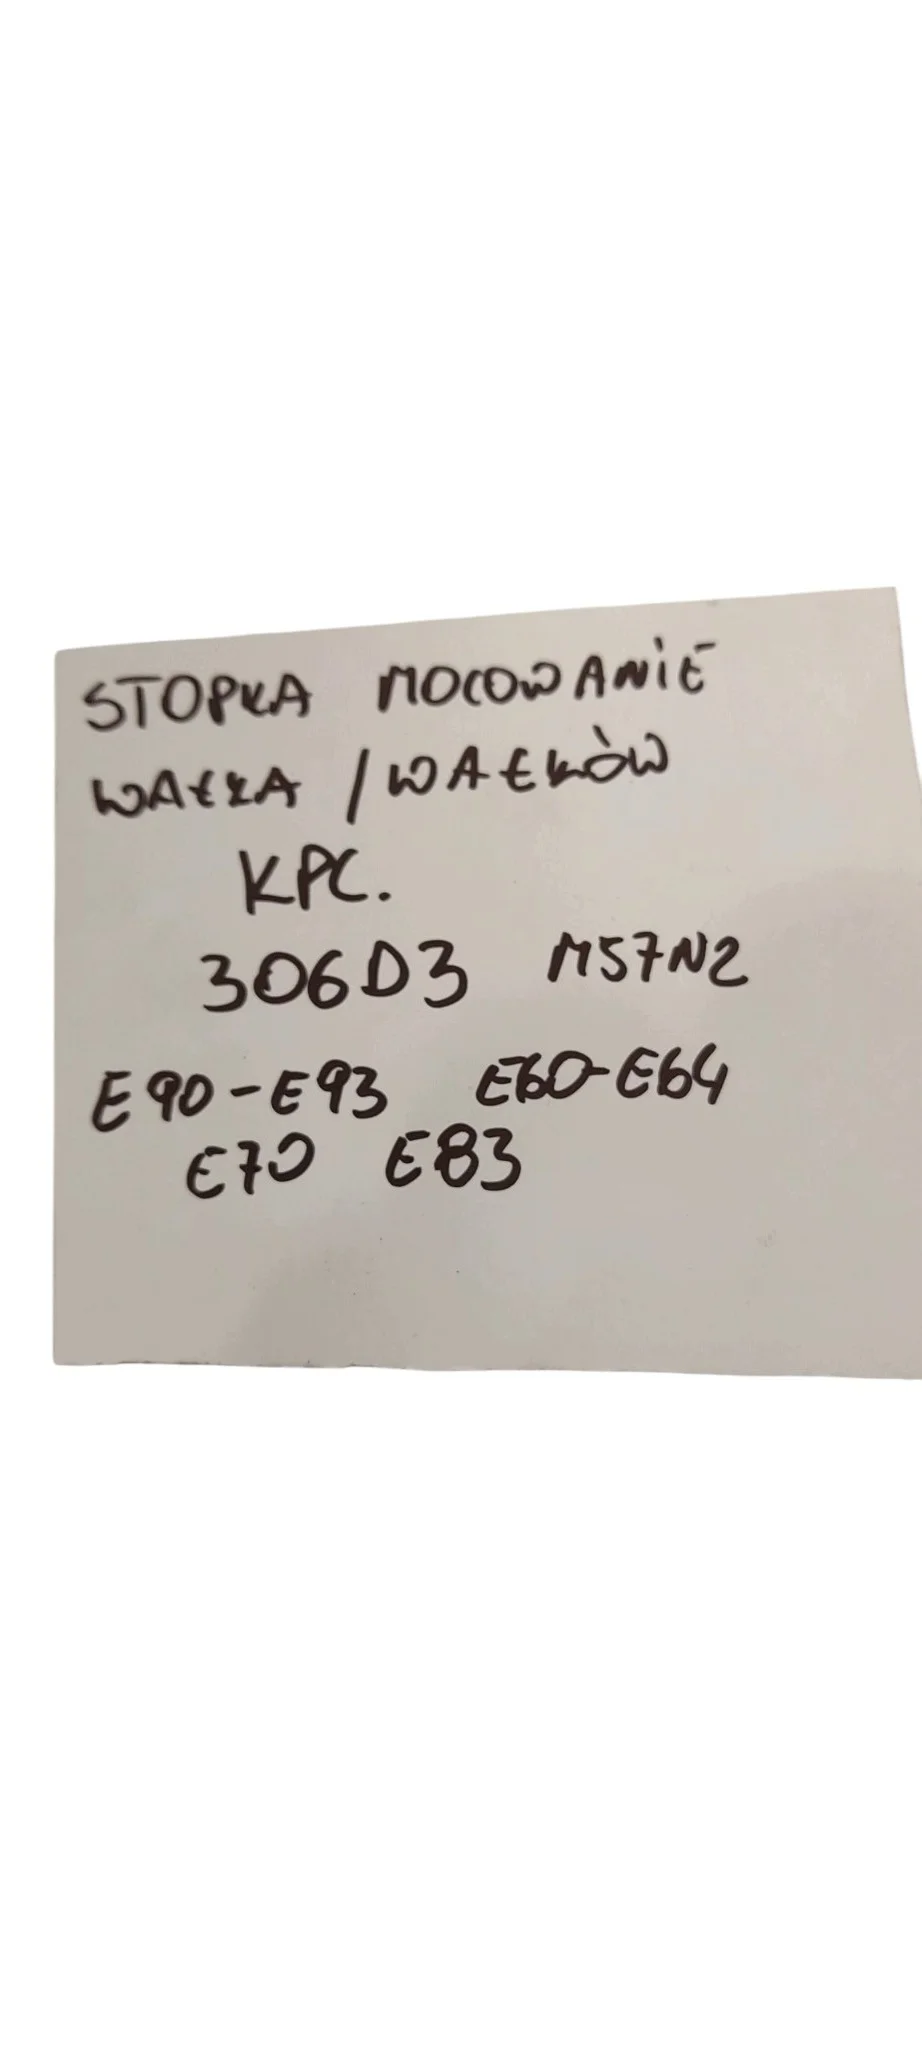 STOPKA MOCOWANIE
WAŁKA / WAŁKÓW
KPC.
306D3 M57N2
E90-E93 E60-E64
E70 E83